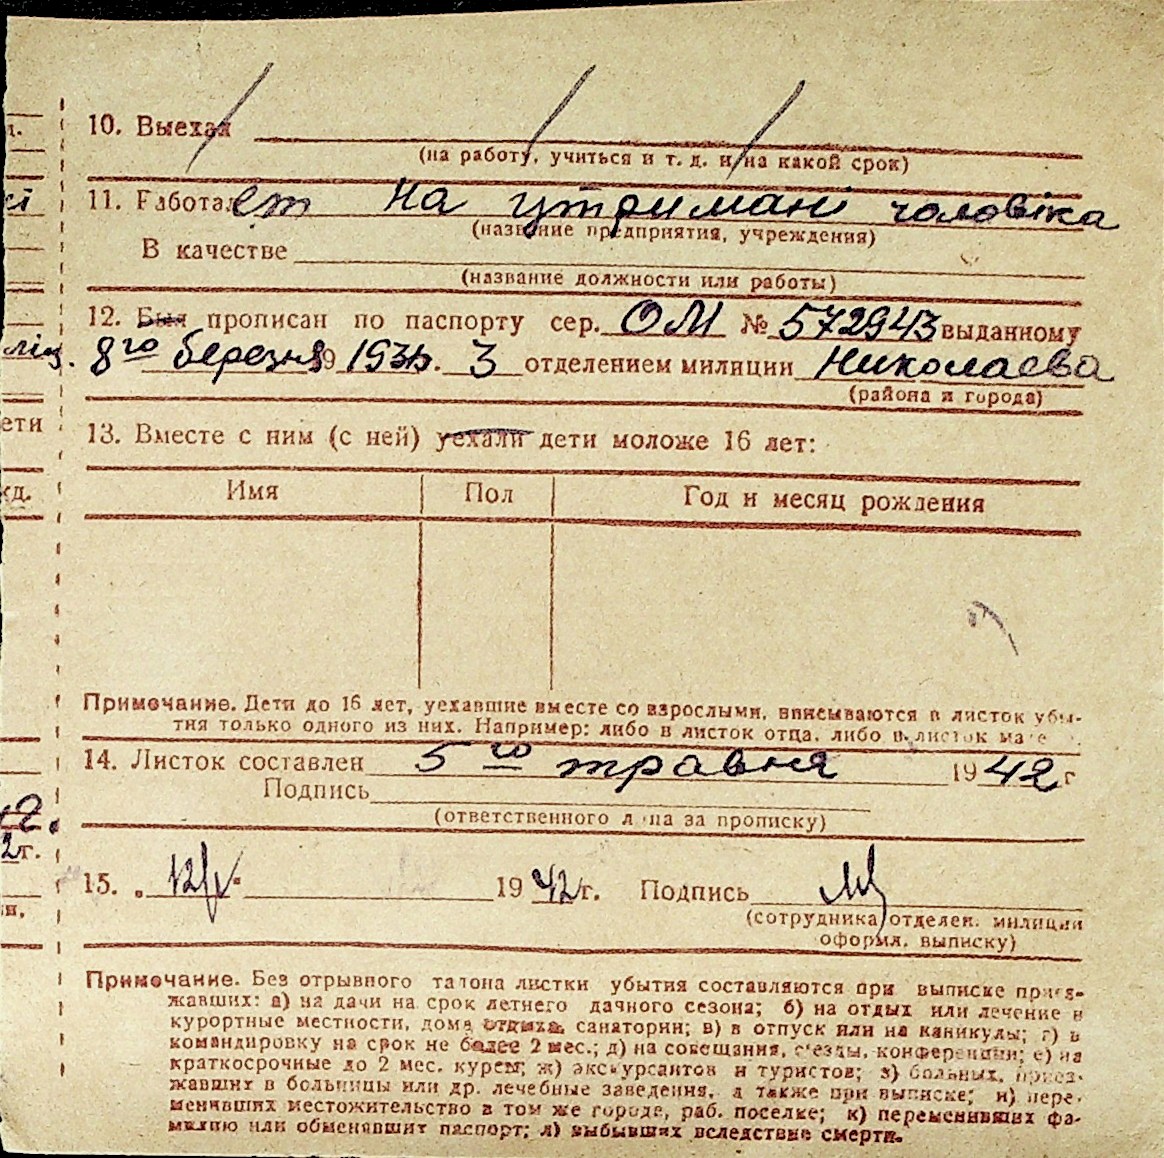 10. Выехал
(на работу, учиться и т. д. и на какой срок)
11. Работает на утримані чоловіка
(название предприятия, учреждения)
В качестве
(название должности или работы)
12. Был прописан по паспорту сер. ОМ № 572943 выданному
8го березня 193 . 3 отделением милиции Николаева
(района и города)
13. Вместе с ним (с ней) уехали дети моложе 16 лет:
Имя Пол Год и месяц рождения
Примечание. Дети до 16 лет, уехавшие вместе со взрослыми, вписываются в листок убы-
тия только одного из них. Например: либо в листок отца, либо в листок
14. Листок составлен 5го травня 1942 г
Подпись
(ответственного лица за прописку)
15. 12/V 1942 г. Подпись
(сотрудника отделен. милиции
оформ. выписку)
Примечание. Без отрывного талона листки убытия составляются при выписке приез-
жавших: а) на дачи на срок летнего дачного сезона; б) на отдых или лечение в
курортные местности, дома отдыха, санатории; в) в отпуск или на каникулы; г) в
командировку на срок не более 2 мес.; д) на совещания, с'езды, конференции; е) на
краткосрочные до 2 мес. курсы; ж) экскурсантов и туристов; з) больных, приез-
жавших в больницы или др. лечебные заведения, а также при выписке; и) пере-
менивших местожительство в том же городе, раб. поселке; к) переменивших фа-
милию или обменявшит паспорт; л) выбывших вследствие смерти.